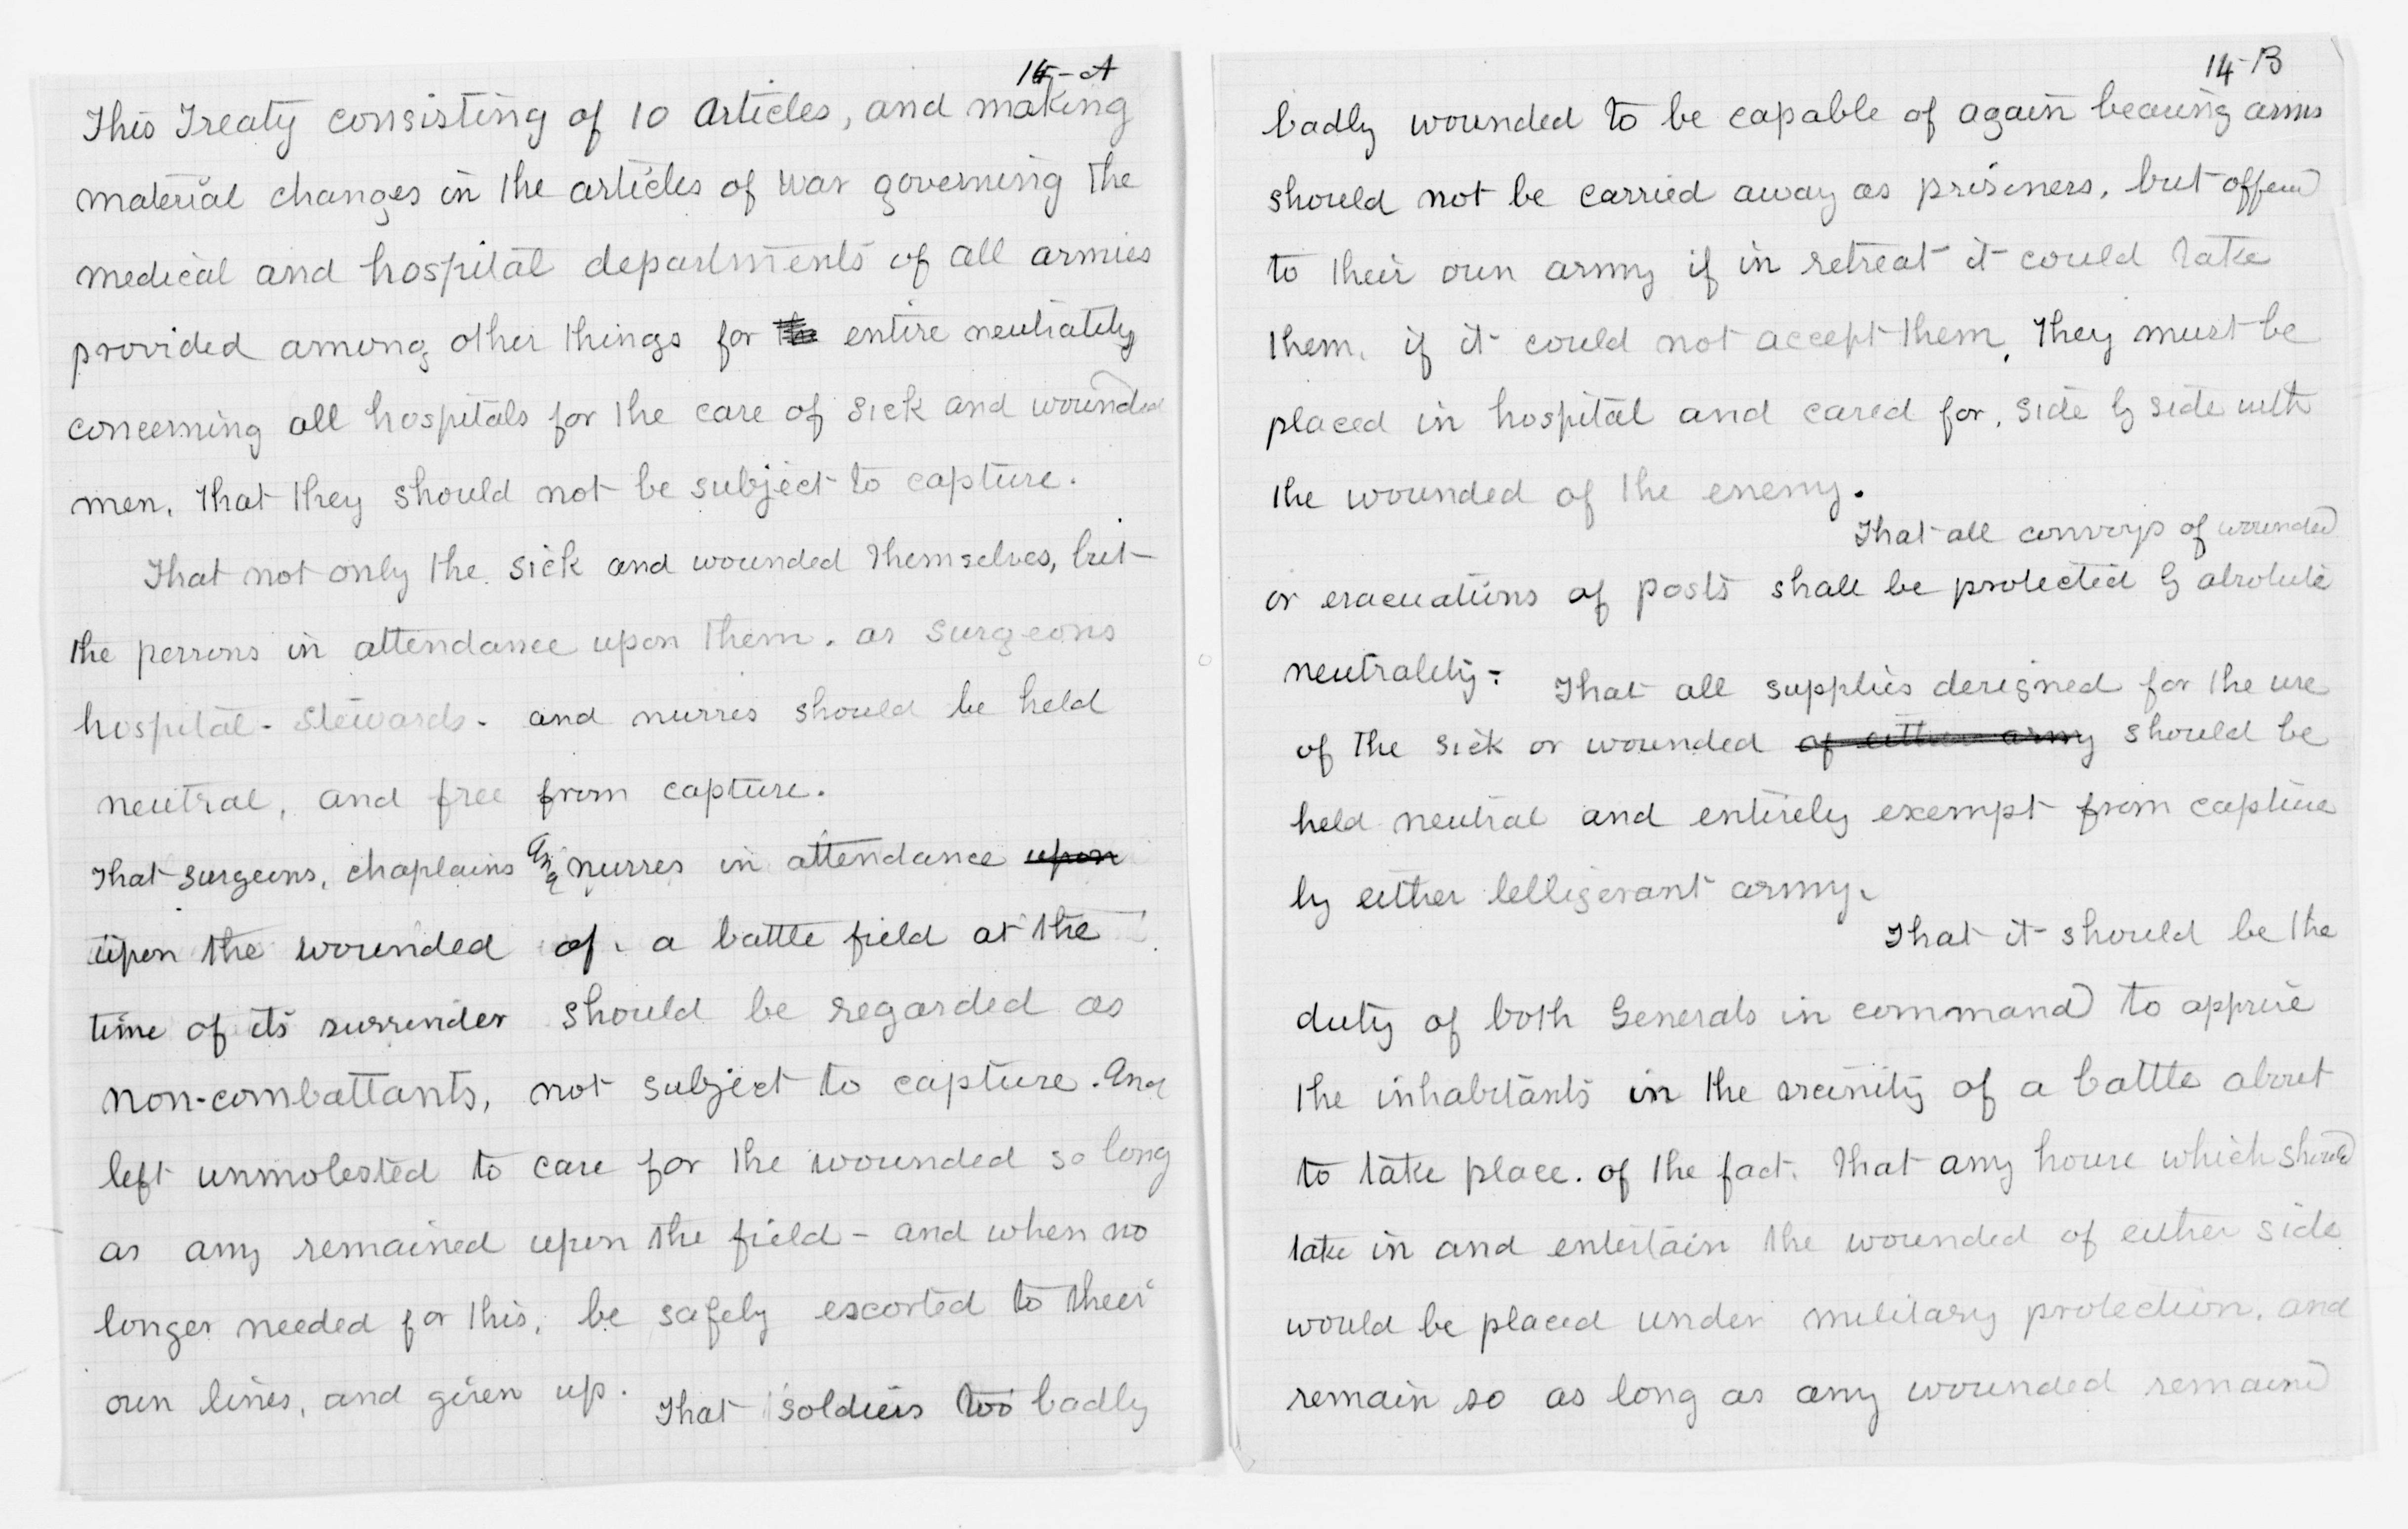 14-A
This Treaty consisting of 10 Articles, and making
material changes in the articles of war governing the
medical and hospital departments of all armies
provided among other things for the entire neutrality
concerning all hospitals for the care of sick and wounded
men, that they should not be subject to capture.
That not only the sick and wounded themselves, but
the persons in attendance upon them. as surgeons
hospital - stewards - and nurses should be held
neutral, and free from capture.
That surgeons, chaplains and nurses in attendance upon
upon the wounded of a battle field at the
time of its surrender should be regarded as
non-combattants, not subject to capture. And
left unmolested to care for the wounded so long
as any remained upon the field - and when no
longer needed for this, be safely escorted to their
own lines, and given up. That soldiers too badly
14-B
badly wounded to be capable of again bearing arms
should not be carried away as prisoners, but offered
to their own army if in retreat it could take
them, if it could not accept them, they must be
placed in hospital and cared for, side by side with
the wounded of the enemy.
That all convoys of wounded
or evacuations of posts shall be protected by absolute
neutrality - That all supplies designed for the use
of the sick or wounded of either army should be
held neutral and entirely exempt from capture
by either belligerant army.
That it should be the
duty of both Generals in command to apprise
the inhabitants in the vicinity of a battle about
to take place. of the fact. That any house which should
take in and entertain the wounded of either side
would be placed under military protection, and
remain so as long as any wounded remained